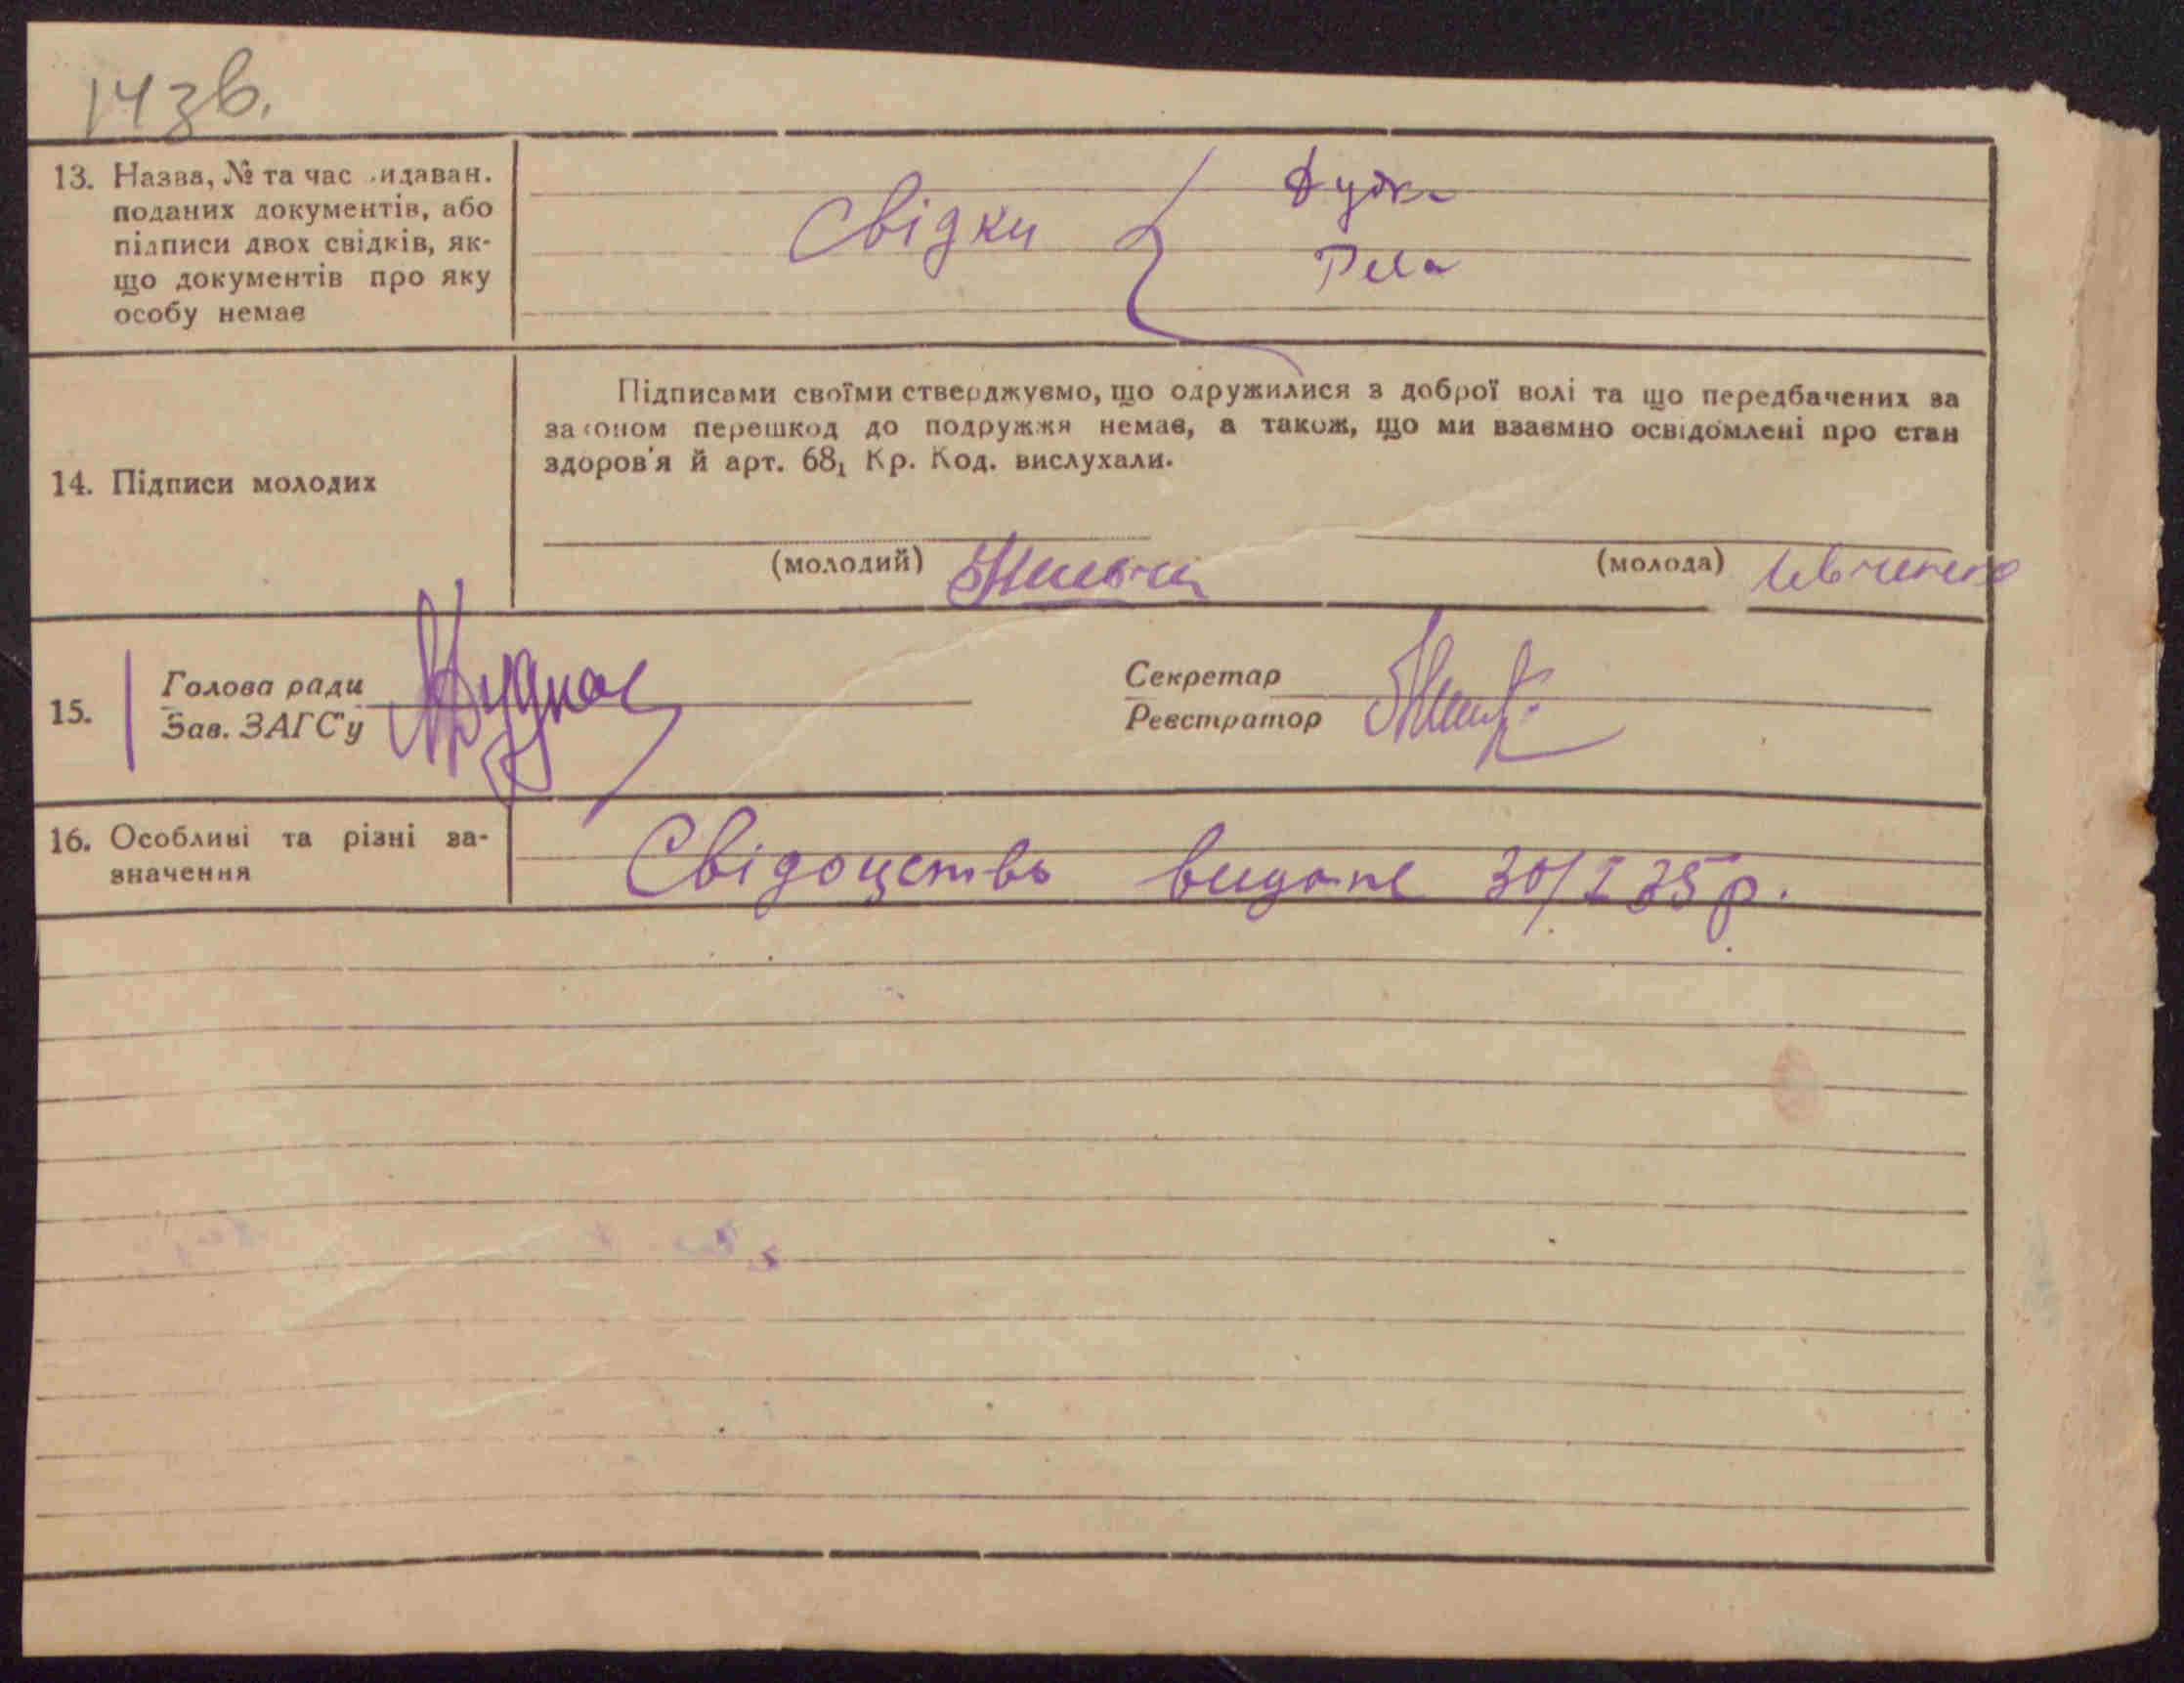 14 зв.
13. Назва, № та час видаван.
поданих документів, або
підписи двох свідків, як-
що документів про яку
особу немає
Свідки
Дудка
Рева
14. Підписи молодих
Підписами своїми стверджуємо, що одружилися з доброї волі та що передбачених за
законом перешкод до подружжя немає, а також, що ми взаємно освідомлені про стан
здоров'я й арт. 68₁ Кр. Код. вислухали.
(молодий)
(молода) Ивченко
15. Голова ради
Зав. ЗАГС'у
Секретар
Реєстратор
16. Особливі та різні за-
значення
Свідоцтво видане 30/I 35 р.